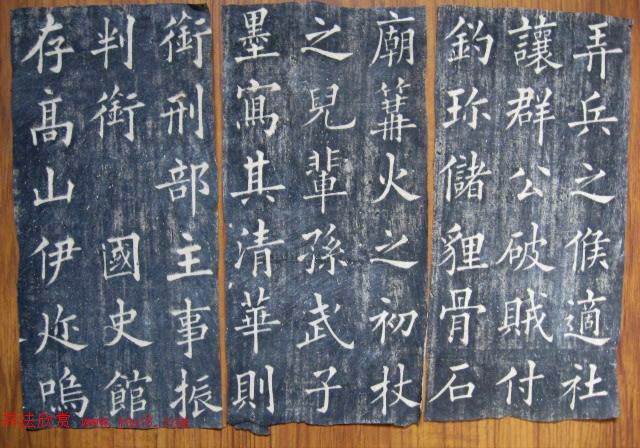 弄兵之候適社
讓群公破賊付
釣珎儲貍骨石
廟篝火之初杖
之兒輩孫武子
墨寫其清華則
銜刑部主事振
判銜 國史館
存髙山伊迩嗚
书法欣赏 www.yac8.com